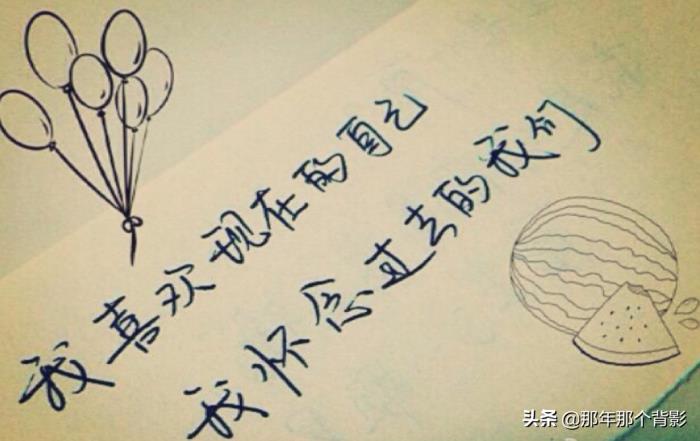 我喜欢现在的自己
我怀念过去的我们
头条 @那年那个背影